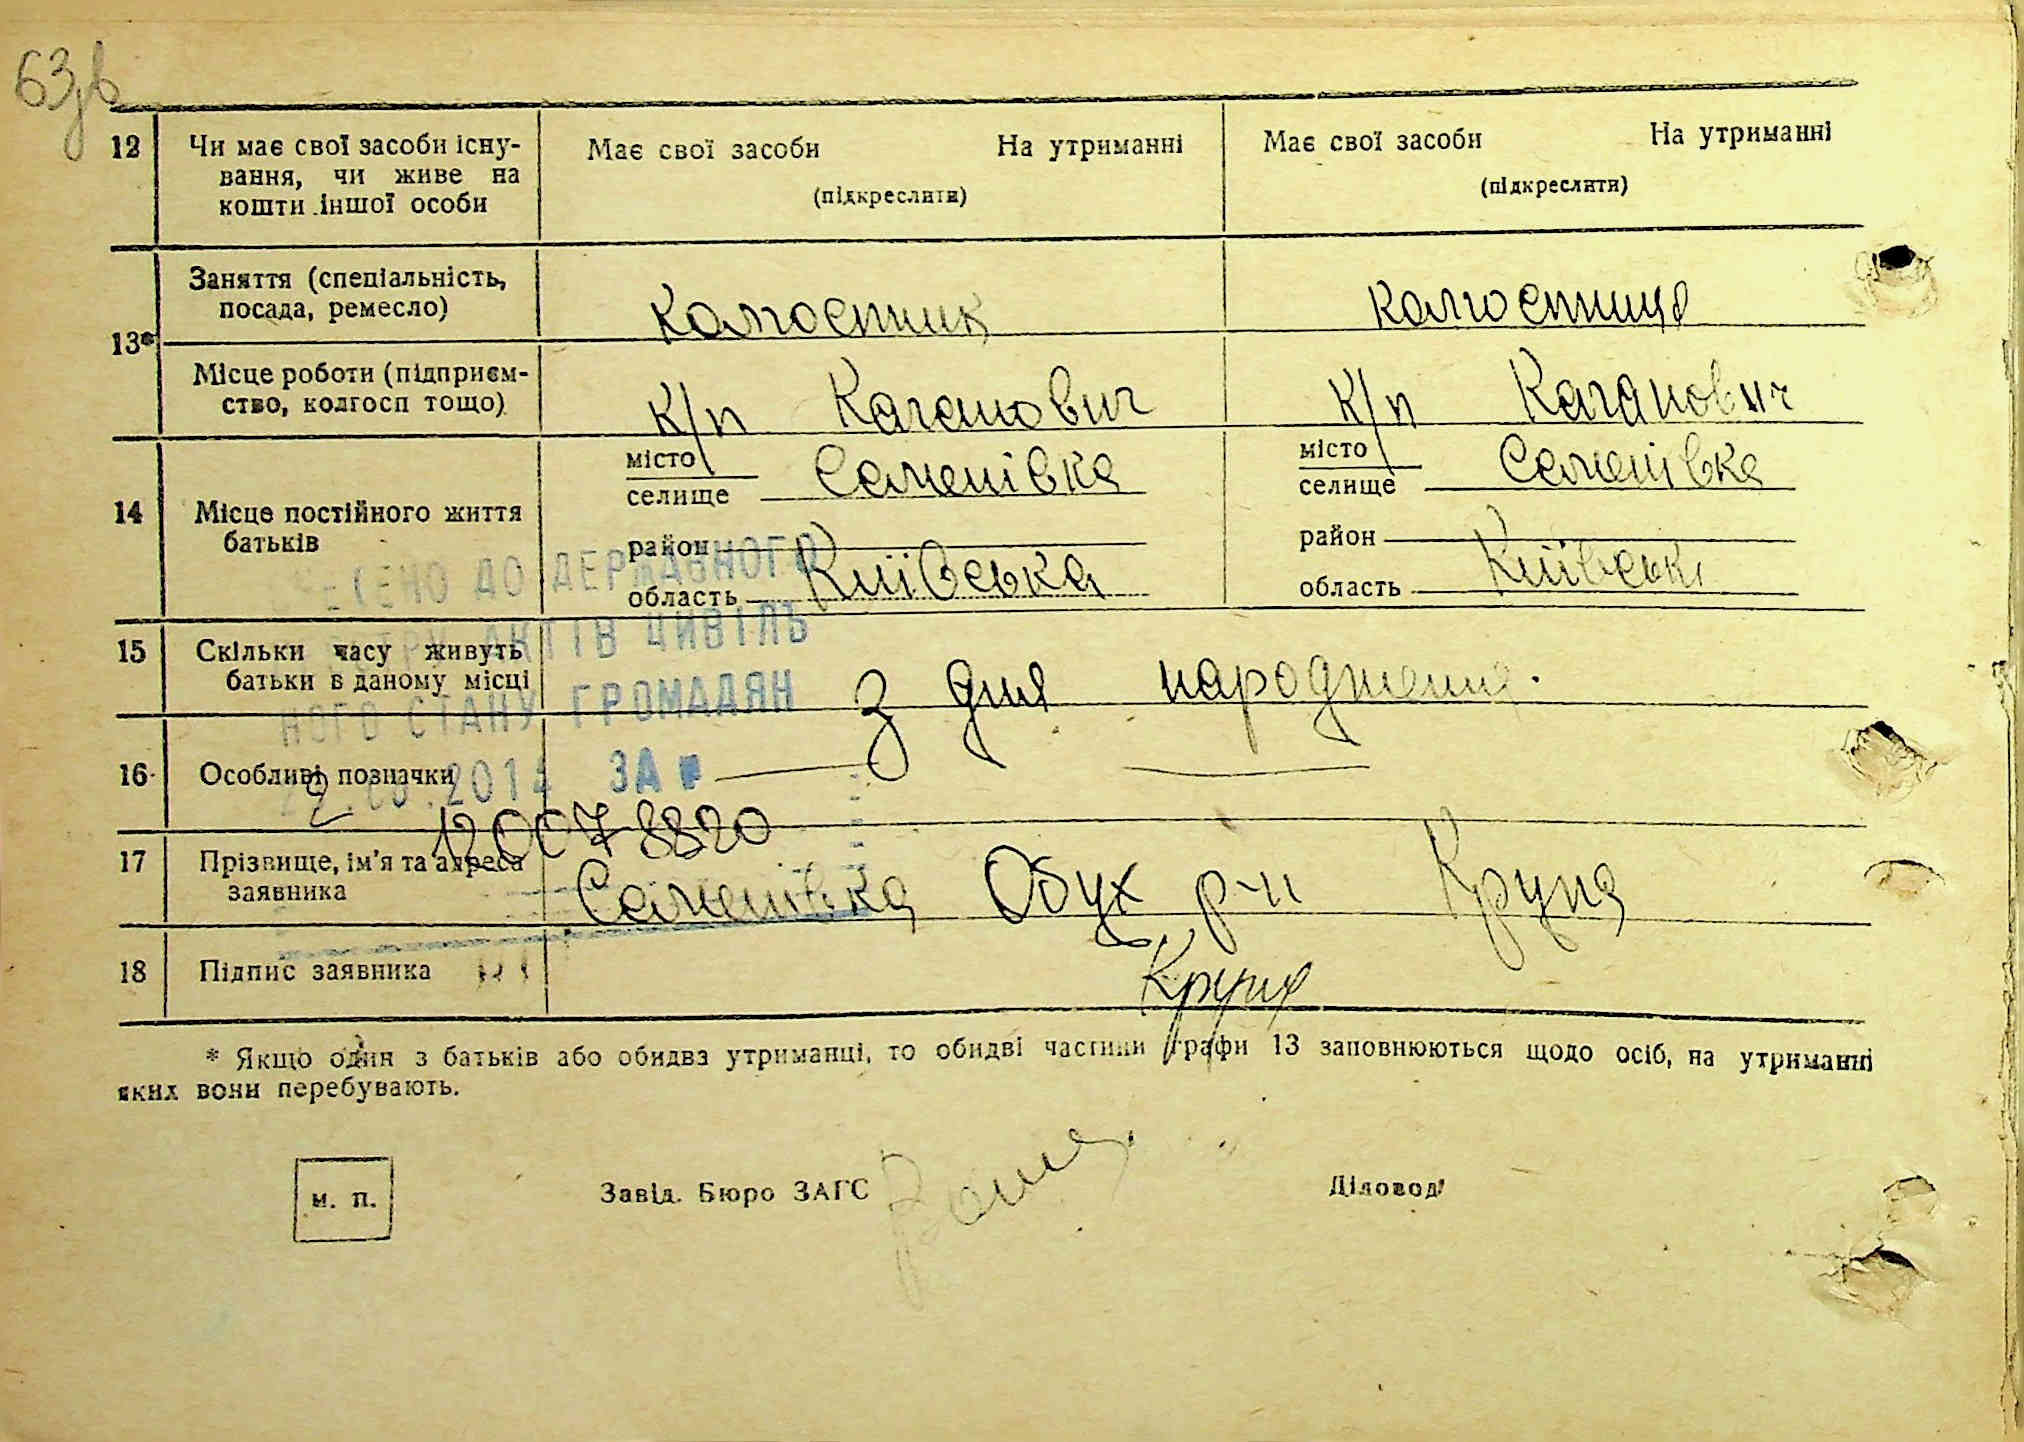 63зв
12 Чи має свої засоби існу- Має свої засоби На утриманні Має свої засоби На утриманні
вання, чи живе на (підкреслити) (підкреслити)
кошти іншої особи
Заняття (спеціальність, колгоспник колгоспниця
посада, ремесло)
13*
Місце роботи (підприєм- к/п Каганович к/п Каганович
ство, колгосп тощо)
місто Семенівка місто Семенівка
селище селище
14 Місце постійного життя
батьків
район район
область Київська область Київська
ДО ДЕРЖАВНОГО
АКТІВ ЦИВІЛЬ
НОГО СТАНУ ГРОМАДЯН
2014 ЗА №
120078820
15 Скільки часу живуть з дня народження.
батьки в даному місці
16 Особливі позначки
17 Прізвище, ім'я та адреса Семенівка Обух р-н Крупа
заявника
18 Підпис заявника Крупа
* Якщо один з батьків або обидва утриманці, то обидві частини графи 13 заповнюються щодо осіб, на утриманні
яких вони перебувають.
м. п. Завід. Бюро ЗАГС Діловод